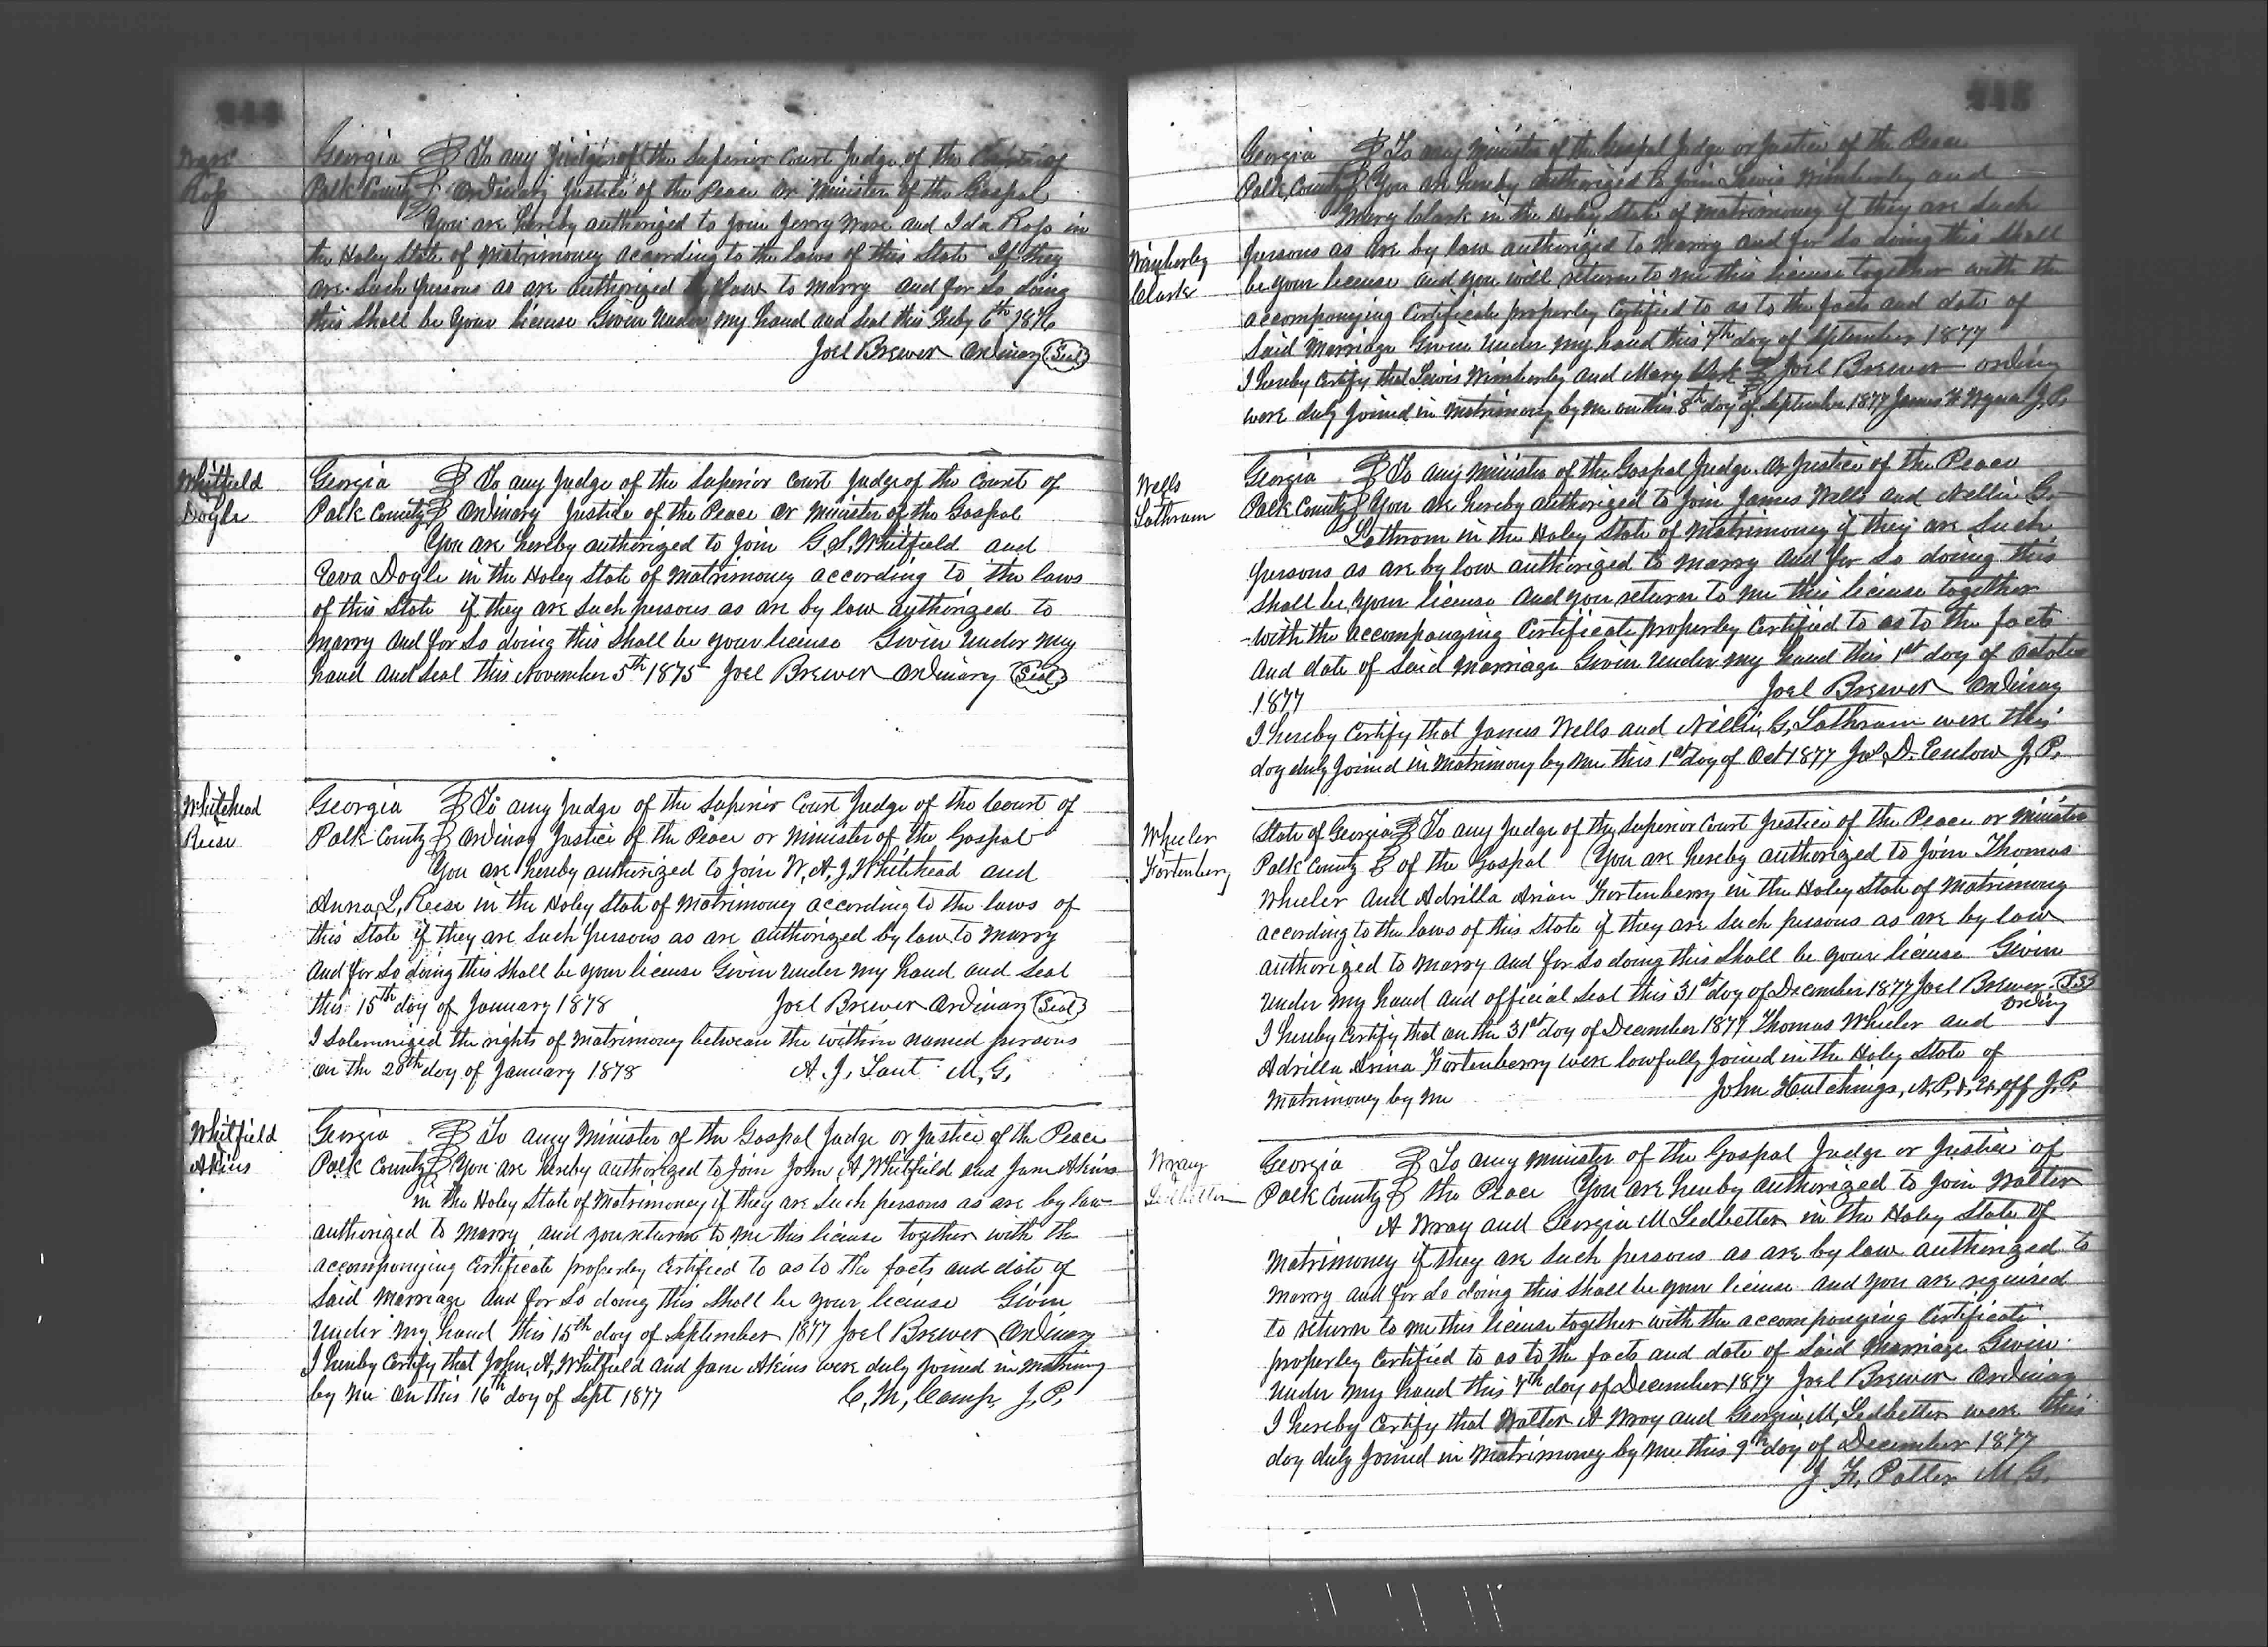 Ware
Ross
Georgia To any Judge of the Superior Court Judge of the Court of
Polk County Ordinary Justice of the Peace or Minister of the Gospal
You are hereby authorized to join Jerry Ware and Ida Ross in
the Holey State of Matrimoney according to the laws of this State If they
are Such persons as are authorized by law to marry and for So doing
this Shall be your license Given Under my hand and seal this Feby 6th 1876
Joel Brewer Ordinary (Seal)
Whitfield
Dogle
Georgia To any Judge of the Superior Court Judge of the Court of
Polk County Ordinary Justice of the Peace or Minister of the Gospal
You are hereby authorized to join G. S. Whitfield and
Eeva Dogle in the Holey State of Matrimoney according to the laws
of this State if they are Such persons as are by law authorized to
marry and for So doing this Shall be your license Given Under my
hand and Seal this November 5th 1875 Joel Brewer Ordinary (Seal)
Whitehead
Reese
Georgia To any Judge of the Superior Court Judge of the Court of
Polk County Ordinary Justice of the Peace or Minister of the Gospal
You are hereby authorized to join W. A. J. Whitehead and
Anna L. Reese in the Holey State of Matrimoney according to the laws of
this State if they are Such persons as are authorized by law to marry
and for So doing this Shall be your license Given Under my hand and Seal
this 15th day of January 1878 Joel Brewer Ordinary (Seal)
I Solemnized the rights of Matrimoney between the within named persons
on the 20th day of January 1878 A. J. M. G.
Whitfield
Akins
Georgia To any Minister of the Gospal Judge or Justice of the Peace
Polk County You are hereby authorized to join John A Whitfield and Jane Akins
in the Holey State of Matrimoney if they are Such persons as are by law
authorized to marry and you return to me this license together with the
accompanying Certificate properley Certified to as to the facts and date of
Said Marriage and for So doing this Shall be your license Given
Under my hand this 15th day of September 1877 Joel Brewer Ordinary
I hereby Certify that John A. Whitfield and Jane Akins were duly joined in
by me on this 16th day of Sept 1877 C. M. Camp J. P.
Wimberley
Clark
Georgia To any Minister of the Gospal Judge or Justice of the Peace
Polk County You are hereby authorized to join Lewis Wimberley and
Mary Clark in the Holey State of Matrimoney if they are Such
persons as are by law authorized to Marry and for So doing this Shall
be your license and you will return to me this license together with the
accompanying Certificate properley Certified to as to the facts and date of
Said Marriage Given Under my hand this 7th day of September 1877
I hereby Certify that Lewis Wimberley and Mary Joel Brewer
were duly joined in Matrimoney by me on this 8th day of September 1877 James J. P.
Wells
Lathram
Georgia To any Minister of the Gospal Judge or Justice of the Peace
Polk County You are hereby authorized to join James Wells and Nellie G.
Lathrom in the Holey State of Matrimoney if they are Such
persons as are by law authorized to marry and for So doing this
Shall be your license and you return to me this license together
with the accompanying Certificate properley Certified to as to the facts
and date of Said Marriage Given Under my hand this 1st day of October
1877 Joel Brewer Ordinary
I hereby Certify that James Wells and Nellie G. Lathram were this
day duly joined in Matrimony by me this 1st day of Oct 1877 Jno D. Enlow J. P.
Wheeler
Fortenberry
State of Georgia To any Judge of the Superior Court Justice of the Peace or Minister
Polk County of the Gospal You are hereby authorized to join Thomas
Wheeler and Adrilla Arian Fortenberry in the Holey State of Matrimoney
according to the laws of this State if they are Such persons as are by law
authorized to marry and for So doing this Shall be your license Given
Under my hand and official Seal this 31st day of December 1877 Joel Brewer
Ordinary
I hereby Certify that on the 31st day of December 1877 Thomas Wheeler and
Adrilla Arina Fortenberry were lawfully joined in the Holey State of
Matrimoney by me John Hutchings, N. P. J. P.
Wray
Ledbetter
Georgia To any Minister of the Gospal Judge or Justice of
Polk County the Peace You are hereby authorized to join Walter
A Wray and Georgia M Ledbetter in the Holey State of
Matrimoney if they are Such persons as are by law authorized to
marry and for So doing this Shall be your license and you are required
to return to me this license together with the accompanying Certificate
properley Certified to as to the facts and date of Said Marriage Given
Under my hand this 7th day of December 1877 Joel Brewer Ordinary
I hereby Certify that Walter A Wray and Georgia M. Ledbetter were this
day duly joined in Matrimoney by me this 9th day of December 1877
J. H. Potter M. G.